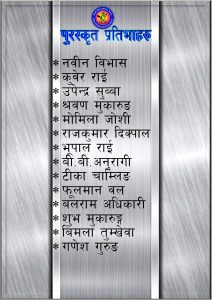 पुरस्कृत प्रतिभाहरु
* नवीन विभास
* कुबेर राई
* उपेन्द्र सुब्बा
* श्रवण मुकारुङ
* मोमिला जोशी
* राजकुमार दिक्पाल
* भूपाल राई
* बी.बी.अनुरागी
* टीका चाम्लिङ
* फूलमान वल
* बलराम अधिकारी
* शुभ मुकारुङ
* बिमला तुम्खेवा
* गणेश गुरुङ